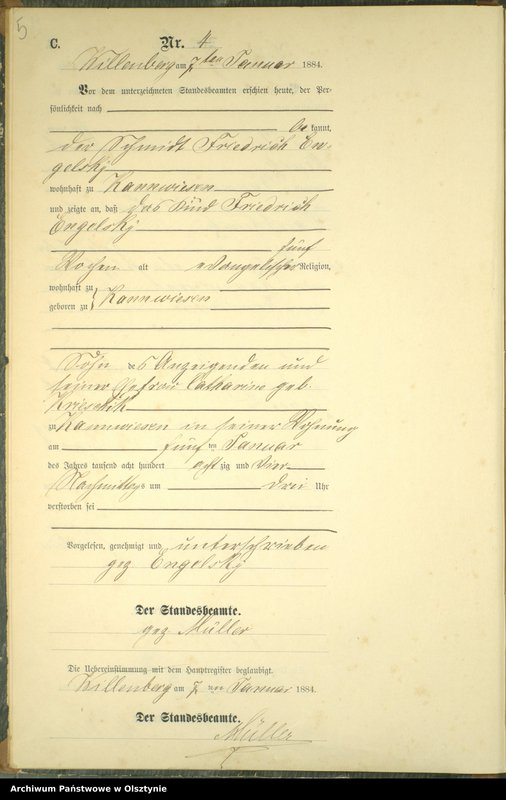 5
C. Nr. 4
Willenberg am 7ten Januar 1884.
Vor dem unterzeichneten Standesbeamten erschien heute, der Per-
sönlichkeit nach
be kannt,
der Schmidt Friedrich En-
gelsky
wohnhaft zu Kannwiesen
und zeigte an, daß das Kind Friedrich
Engelsky
fünf
Wochen alt evangelischer Religion,
wohnhaft zu
geboren zu Kannwiesen
Sohn des Anzeigenden und
seiner Ehefrau Catharine geb.
zu Kannwiesen in seiner Wohnung
am fünf ten Januar
des Jahres tausend acht hundert acht zig und vier
Nachmittags um drei Uhr
verstorben sei
Vorgelesen, genehmigt und unterschrieben
gez Engelsky
Der Standesbeamte.
gez Müller
Die Uebereinstimmung mit dem Hauptregister beglaubigt.
Willenberg am 7 ten Januar 1884.
Der Standesbeamte.
Müller
Archiwum Państwowe w Olsztynie